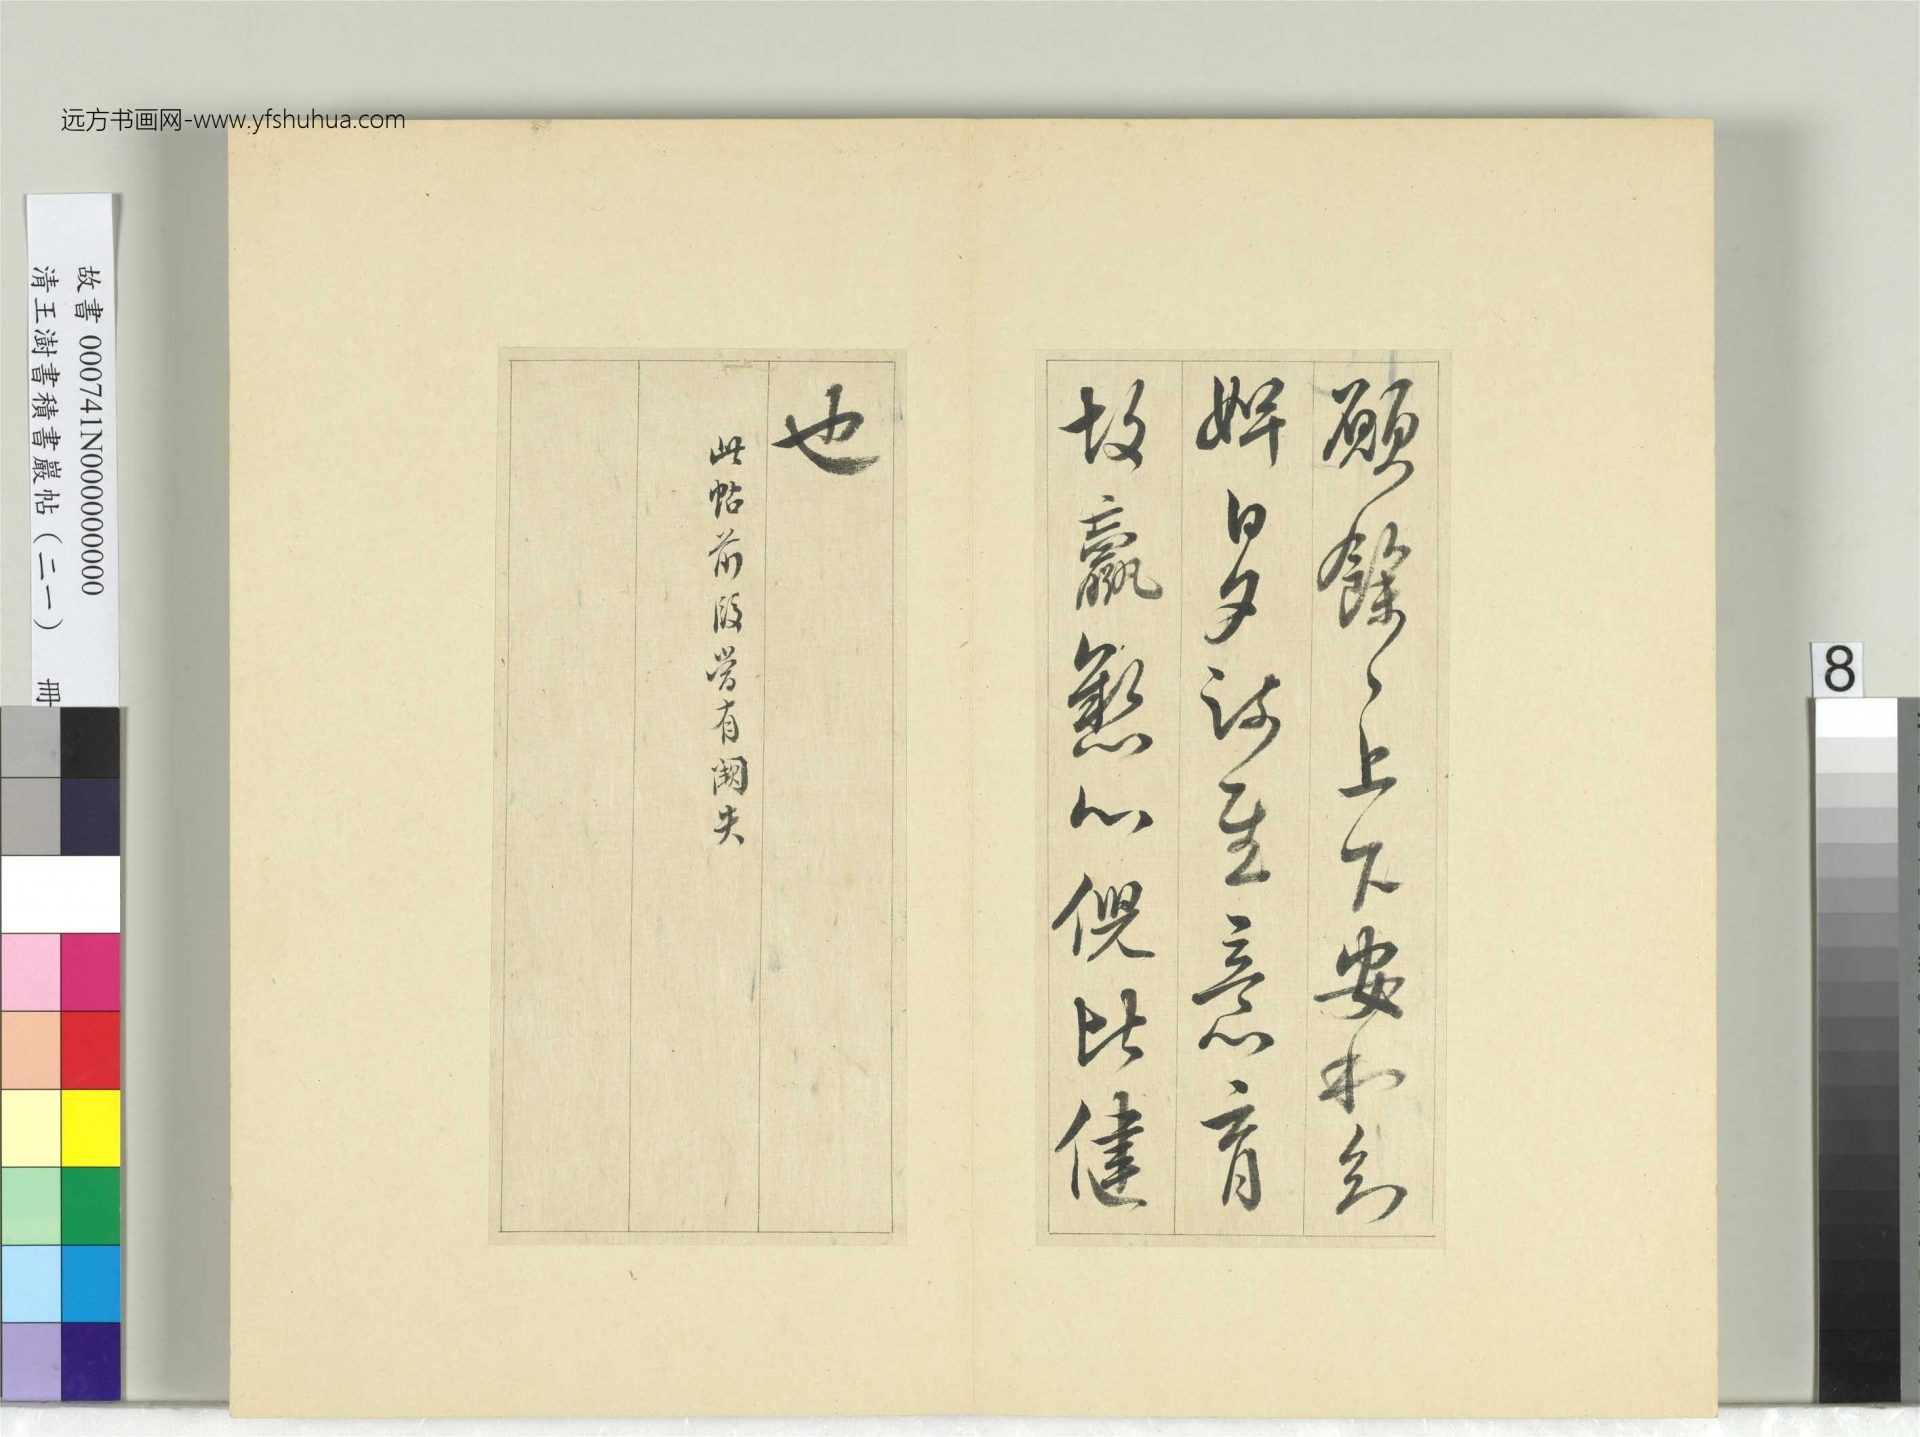 远方书画网-www.yfshuhua.com
願餘、上下安和知
婢日夕疏至意育
故羸懸心倪比健
也
此帖前段當有闕失
故書 000741N000000000
清王澍書積書巖帖（二一） 冊
8